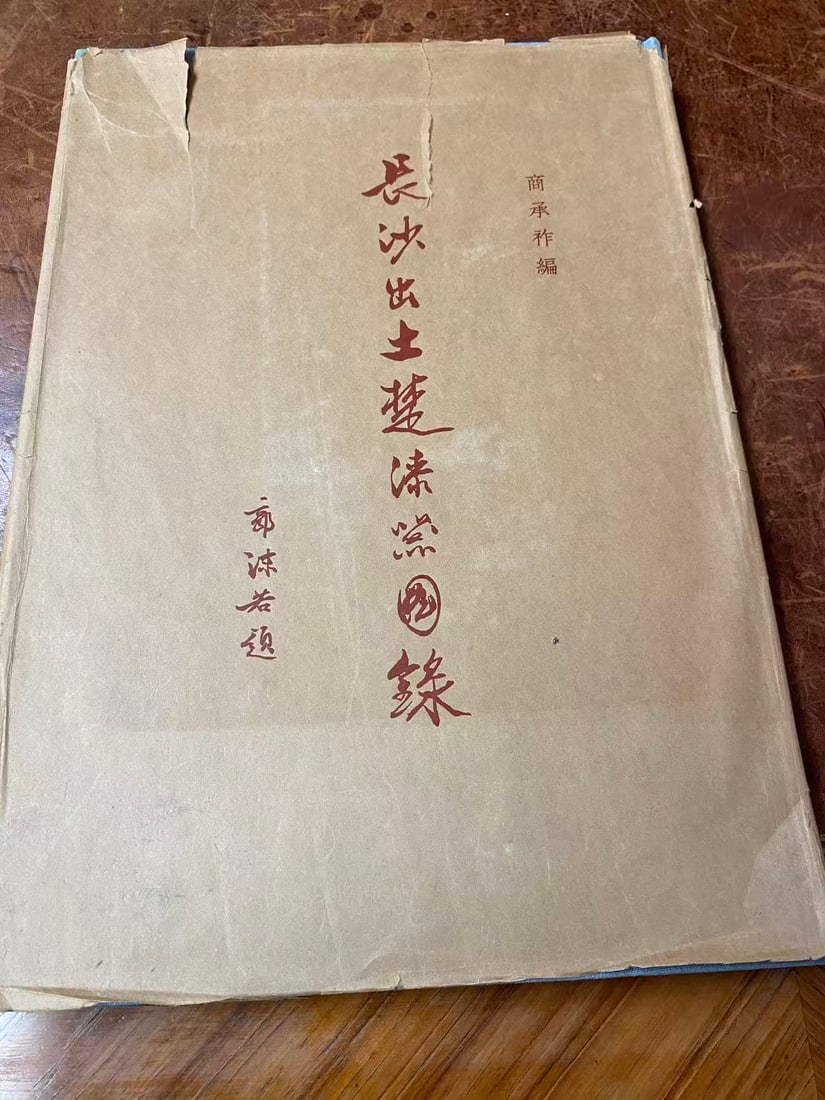 商承祚編
長沙出土楚漆器圖錄
郭沫若題